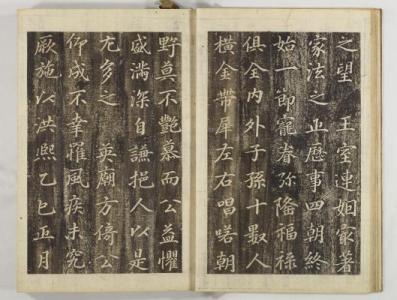 之望　王室連姻家著
家法之正歷事四朝終
始一節寵眷弥隆福祿
俱全內外子孫十人
橫金帶犀左右唱喏朝
野莫不艷慕而公益懼
盛滿深自謙挹人以是
尤多之　英廟方倚公
仰成不幸罹風疾未究
厥施以洪熙乙巳正月